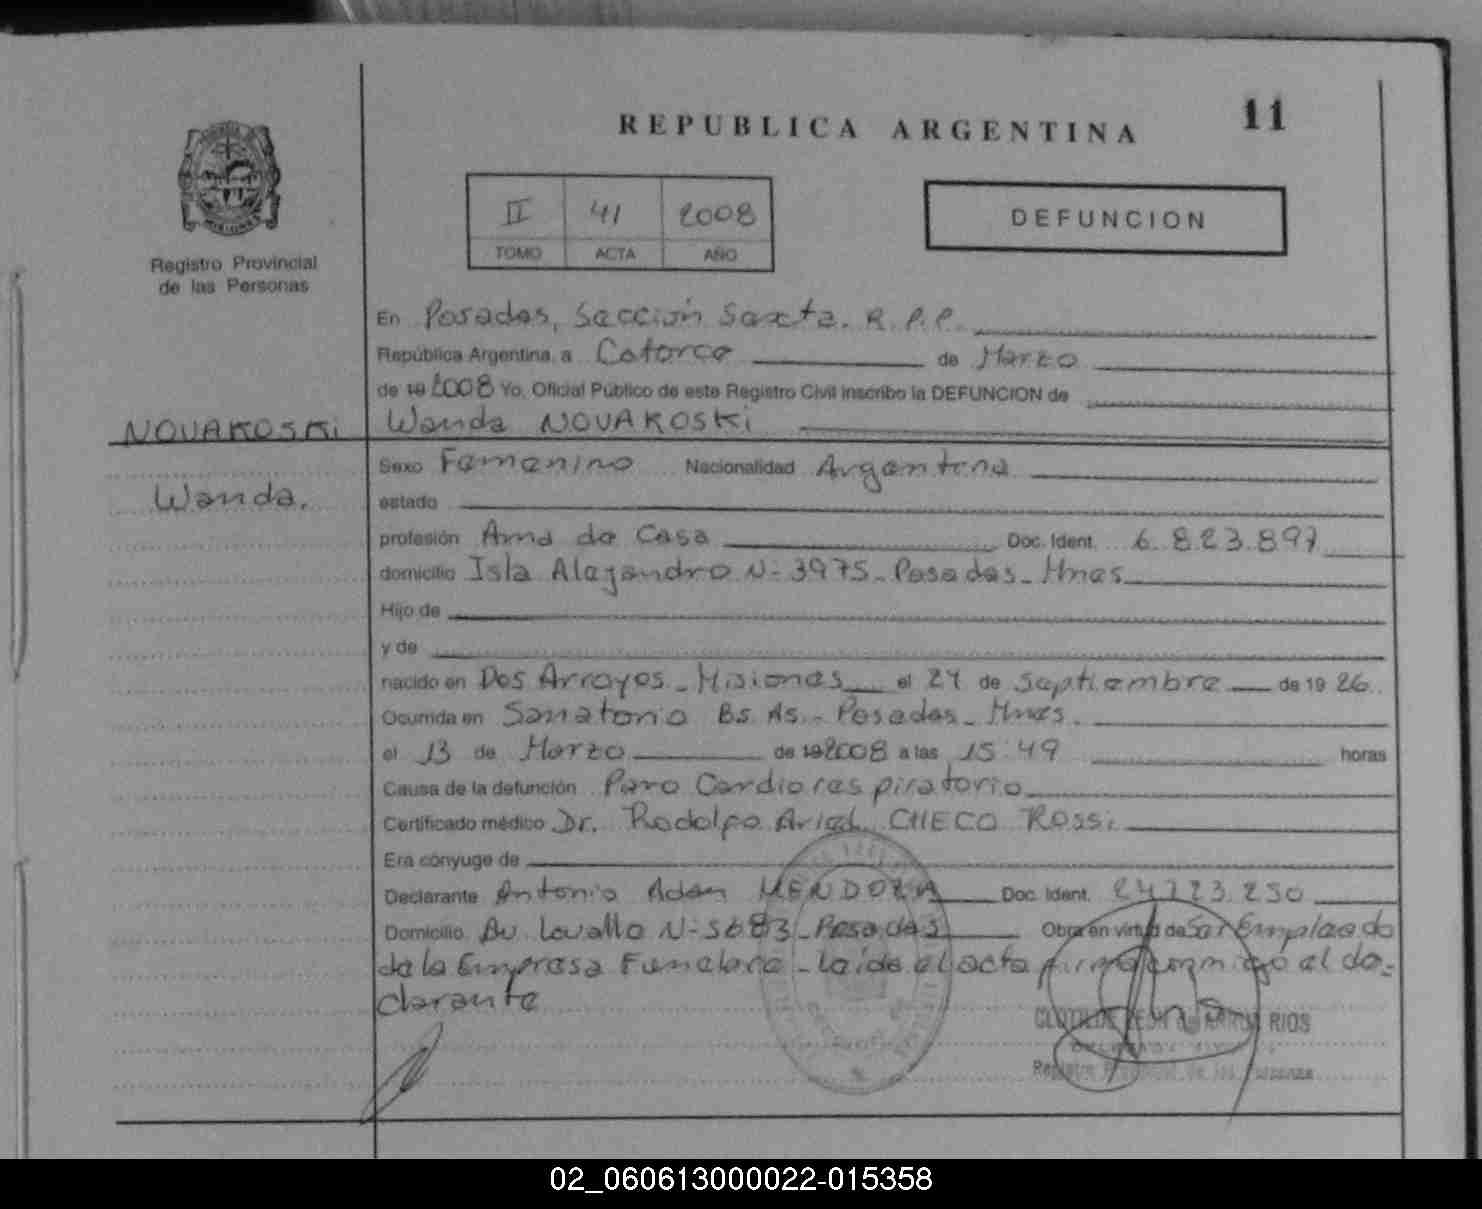 REPUBLICA ARGENTINA
11
II 41 2008
TOMO ACTA AÑO
DEFUNCION
Registro Provincial
de las Personas
En Posadas, Sección Sexta. R. P. P.
República Argentina, a Catorce de Marzo
de 19 2008 Yo, Oficial Público de este Registro Civil inscribo la DEFUNCION de
NOVAKOSKi
Wanda NOVAKOSKi
Sexo Femenino Nacionalidad Argentina
Wanda.
estado
profesión Ama de Casa Doc. Ident. 6.823.897
domicilio Isla Alejandro N- 3975- Posadas- Mnes
Hijo de
y de
nacido en Dos Arroyos- Misiones el 24 de Septiembre de 19 26.
Ocurrida en Sanatorio Bs. As.- Posadas- Mnes.
el 13 de Marzo de 19 2008 a las 15:49 horas
Causa de la defunción Paro Cardiorespiratorio
Certificado médico Dr. Rodolfo Ariel CHECO ROSSi
Era cónyuge de
Declarante Antonio Adan MENDOZA Doc. Ident. 24.723.230
Domicilio Av. Lavalle N- 5683- Posadas Obra en virtud de Ser Empleado
de la Empresa Funebre- Leída el acta firma conmigo el de-
clarante
RIOS
Registro Provincial de las Personas
02_060613000022-015358